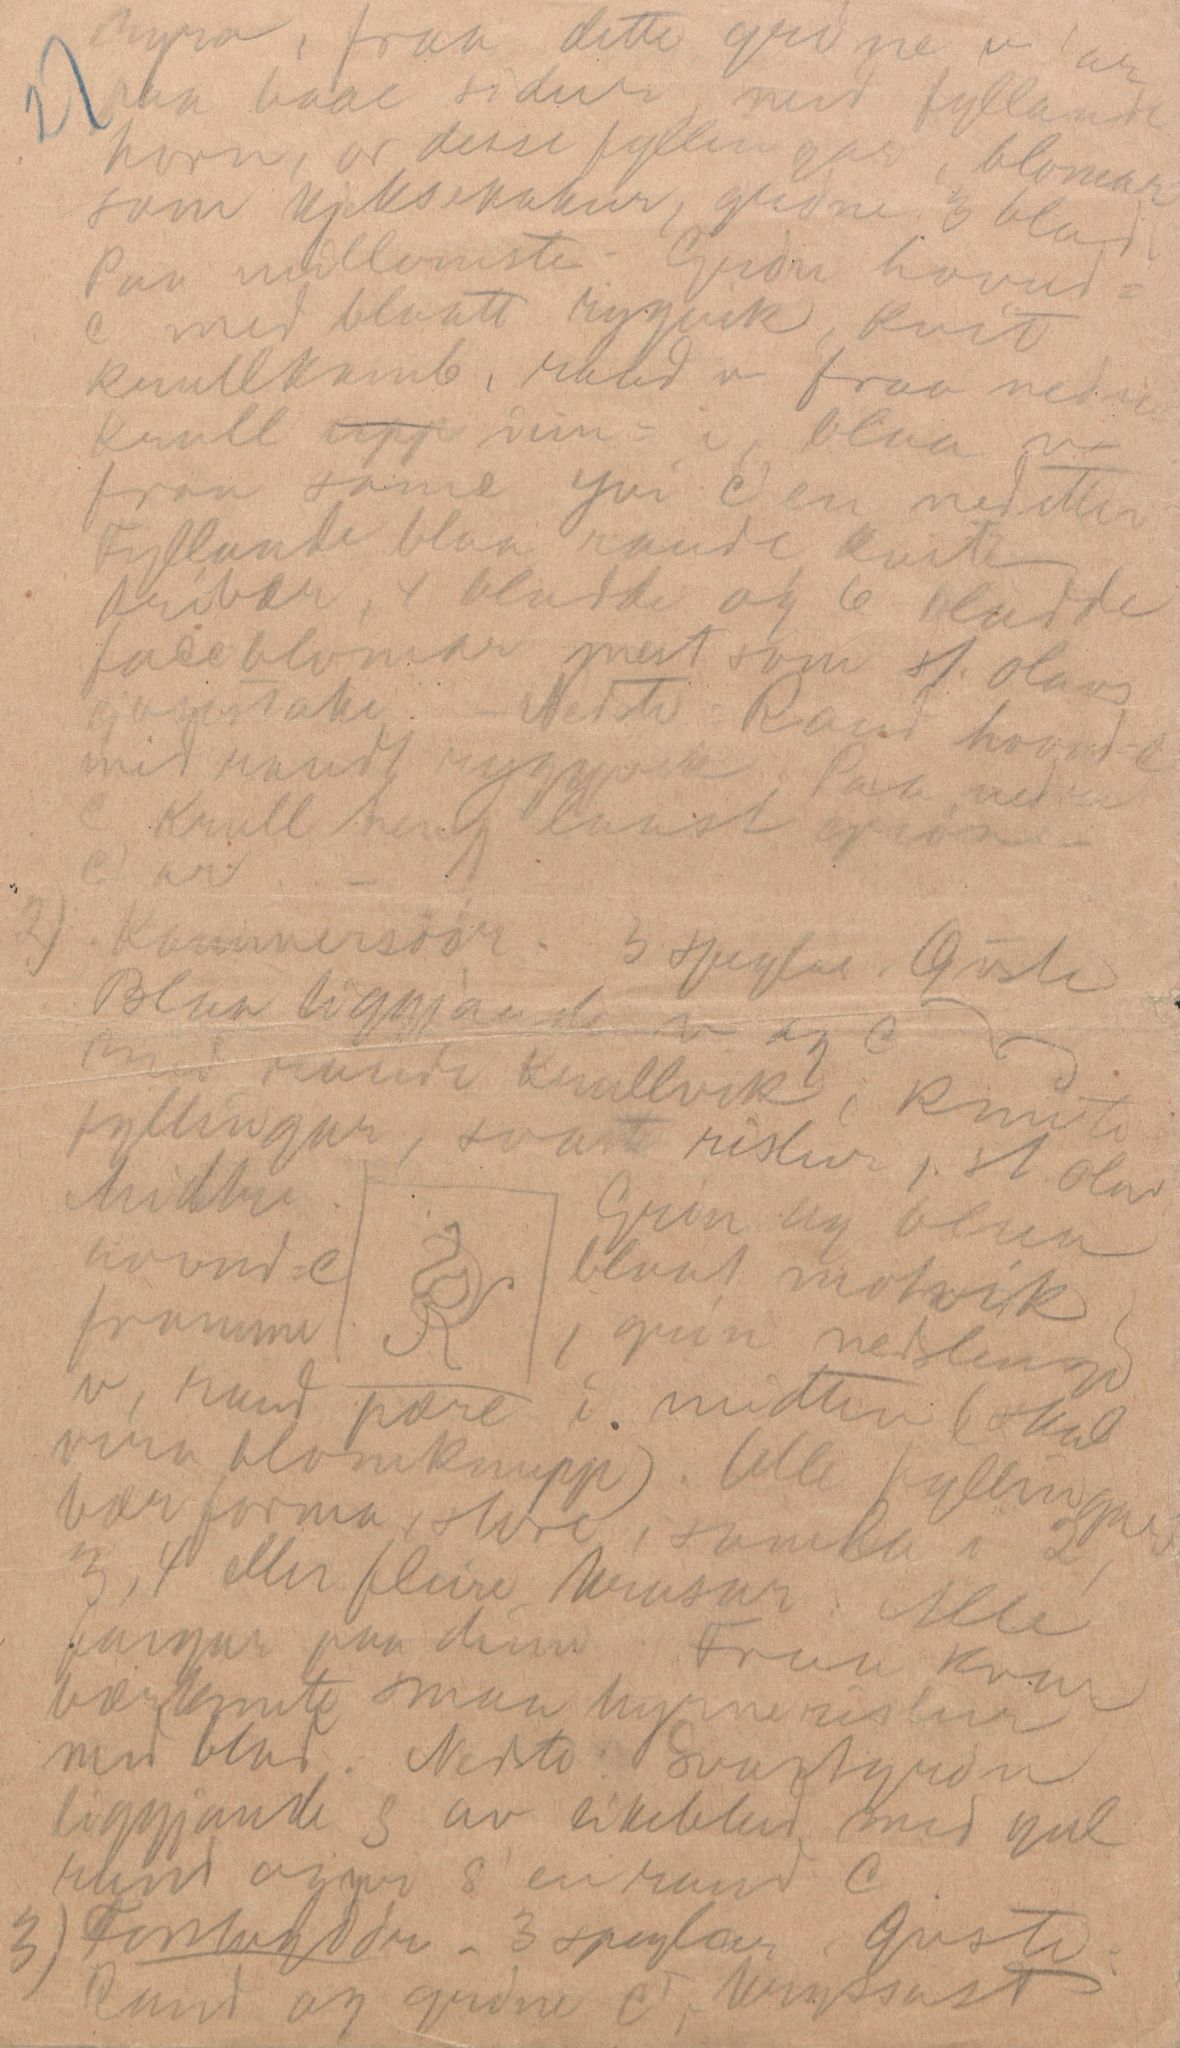 fraa dette gröne v'ar
paa baae sidur, med fyllande
horn, or desse fyllingar, blomar
som kjeksekakur, gröne 3 blad
Paa millomste - Grön hovud=
C med blaatt rygvik, kvit
krullkamb, raud v fraa nedre
krull upp i, blaa v
fraa same yvi C'en nedetter
Fyllande blaa raude kvite
tribær, 4 bladde og 6 bladde
faceblomar mest som st. olavs
- Nedste: Raud hovud-C
med raudt rygvik. Paa nedra
C krull heng laust gröne
C'ar. -
2) Kammersdör. 3 speglar. Övste
Blaa liggjande v og C
med raude krullvik, knute
fyllingar, svarte ristur, st olav
Midtre. Grön og blaa
hovud=C blaat motvik,
framme, grön nedslengd
v, raud pære i midten (skal
vera blomknupp). Alle fyllingar
bærforma, store, samla i 2,
3, 4 eller fleire krusar. Alle
fargar paa deim. Fraa kvar
bærknute smaa hyrneristur
med blad. Nedste: Svartgrön
liggjande S av eikeblad med gul
rand og yvi S'en raud C
3) dör - 3 speglar. Övste:
Raud og gröne C',